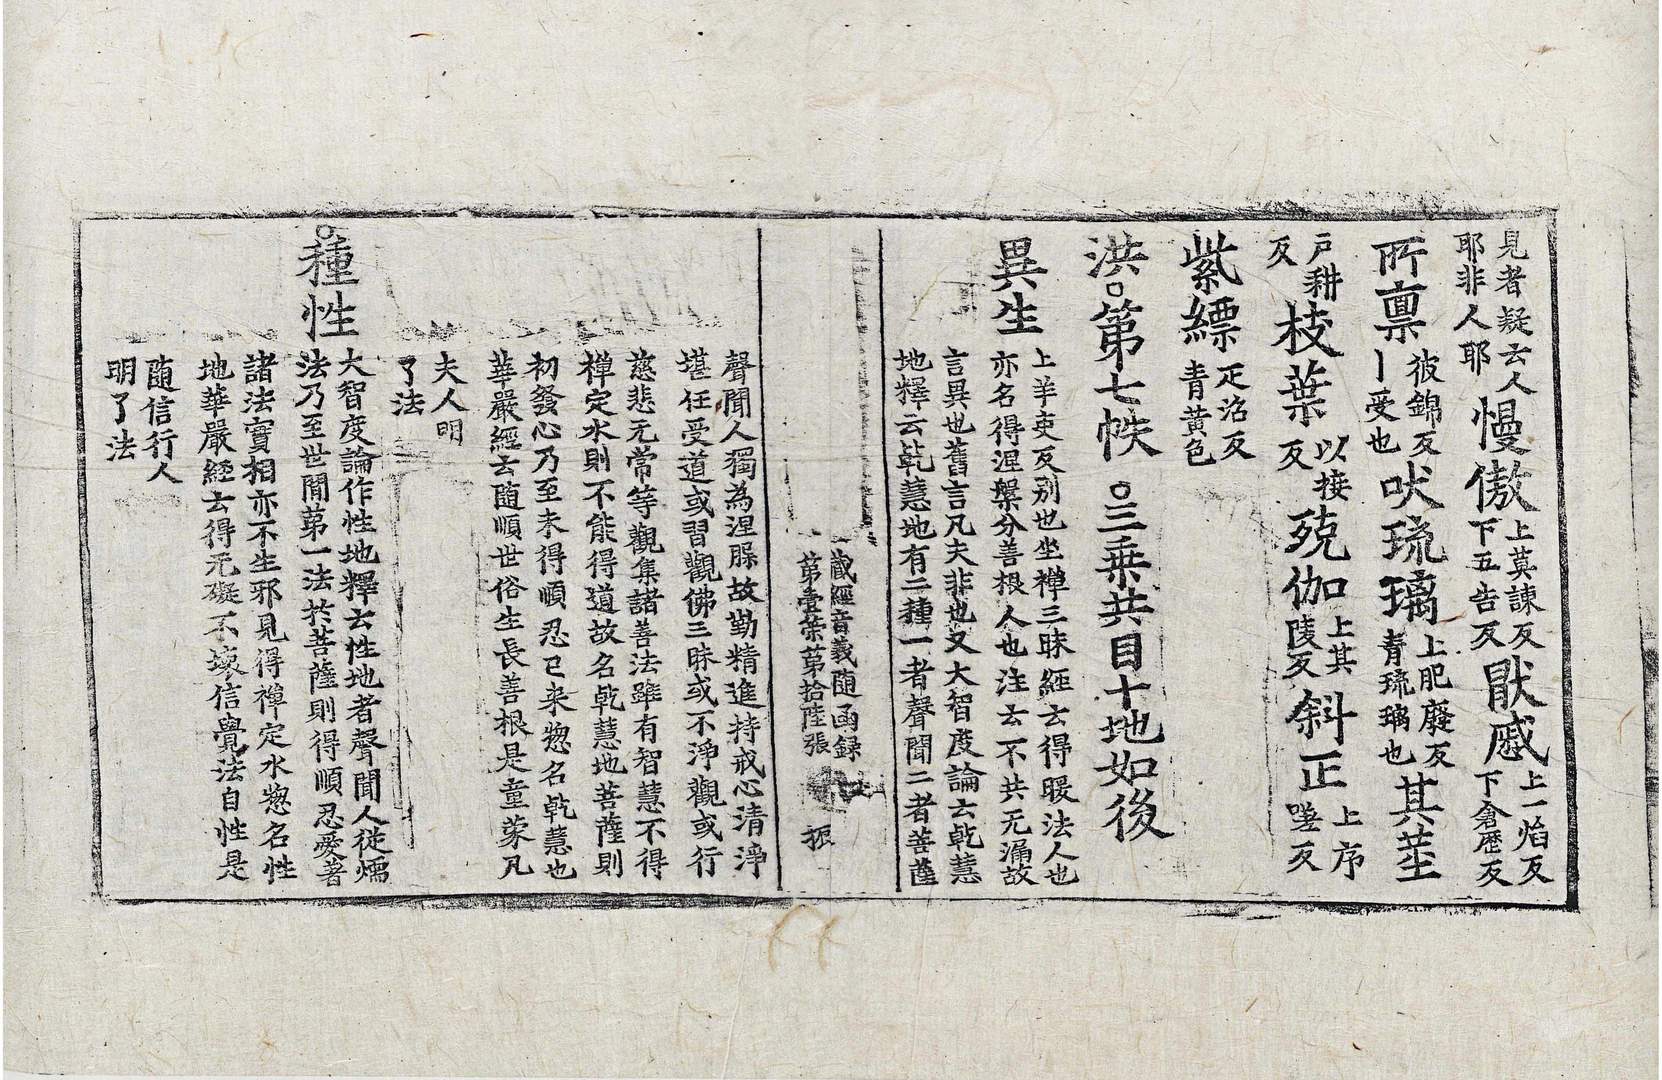 見者疑云人
耶非人耶
慢傲
上莫諌反
下五告反
猒慼
上一焰反
下倉歴反
所稟
彼錦反
丨受也
吠琉璃
上肥廢反
青琉璃也
其莖
戸耕
反
枝葉
以接
反
殑伽
上其
陵反
斜正
上序
嗟反
紫縹
疋沼反
青黄色
洪○第七帙 ○三乗共目十地如後
異生
上羊吏反别也坐禅三昧経云得暖法人也
亦名得涅槃分善根人也注云不共无漏故
言異也舊言凡夫非也又大智度論云乾慧
地釋云乾慧地有二種一者聲聞二者菩薩
藏經音義隨函録
第壹䇿第拾陸張
振
聲聞人獨為涅槃故勤精進持戒心清淨
堪任受道或習觀佛三昧或不淨觀或行
慈悲无常等觀集諸善法雖有智慧不得
禅定水則不能得道故名乾慧地菩薩則
初發心乃至未得順忍已来揔名乾慧也
華嚴經云隨順世俗生長善根是童蒙凡
夫人明
了法
○種性
大智度論作性地釋云性地者聲聞人從煗
法乃至世間苐一法於菩薩則得順忍愛著
諸法實相亦不生耶見得禅定水揔名性
地華嚴經云得无礙不壞信覺法自性是
隨信行人
明了法